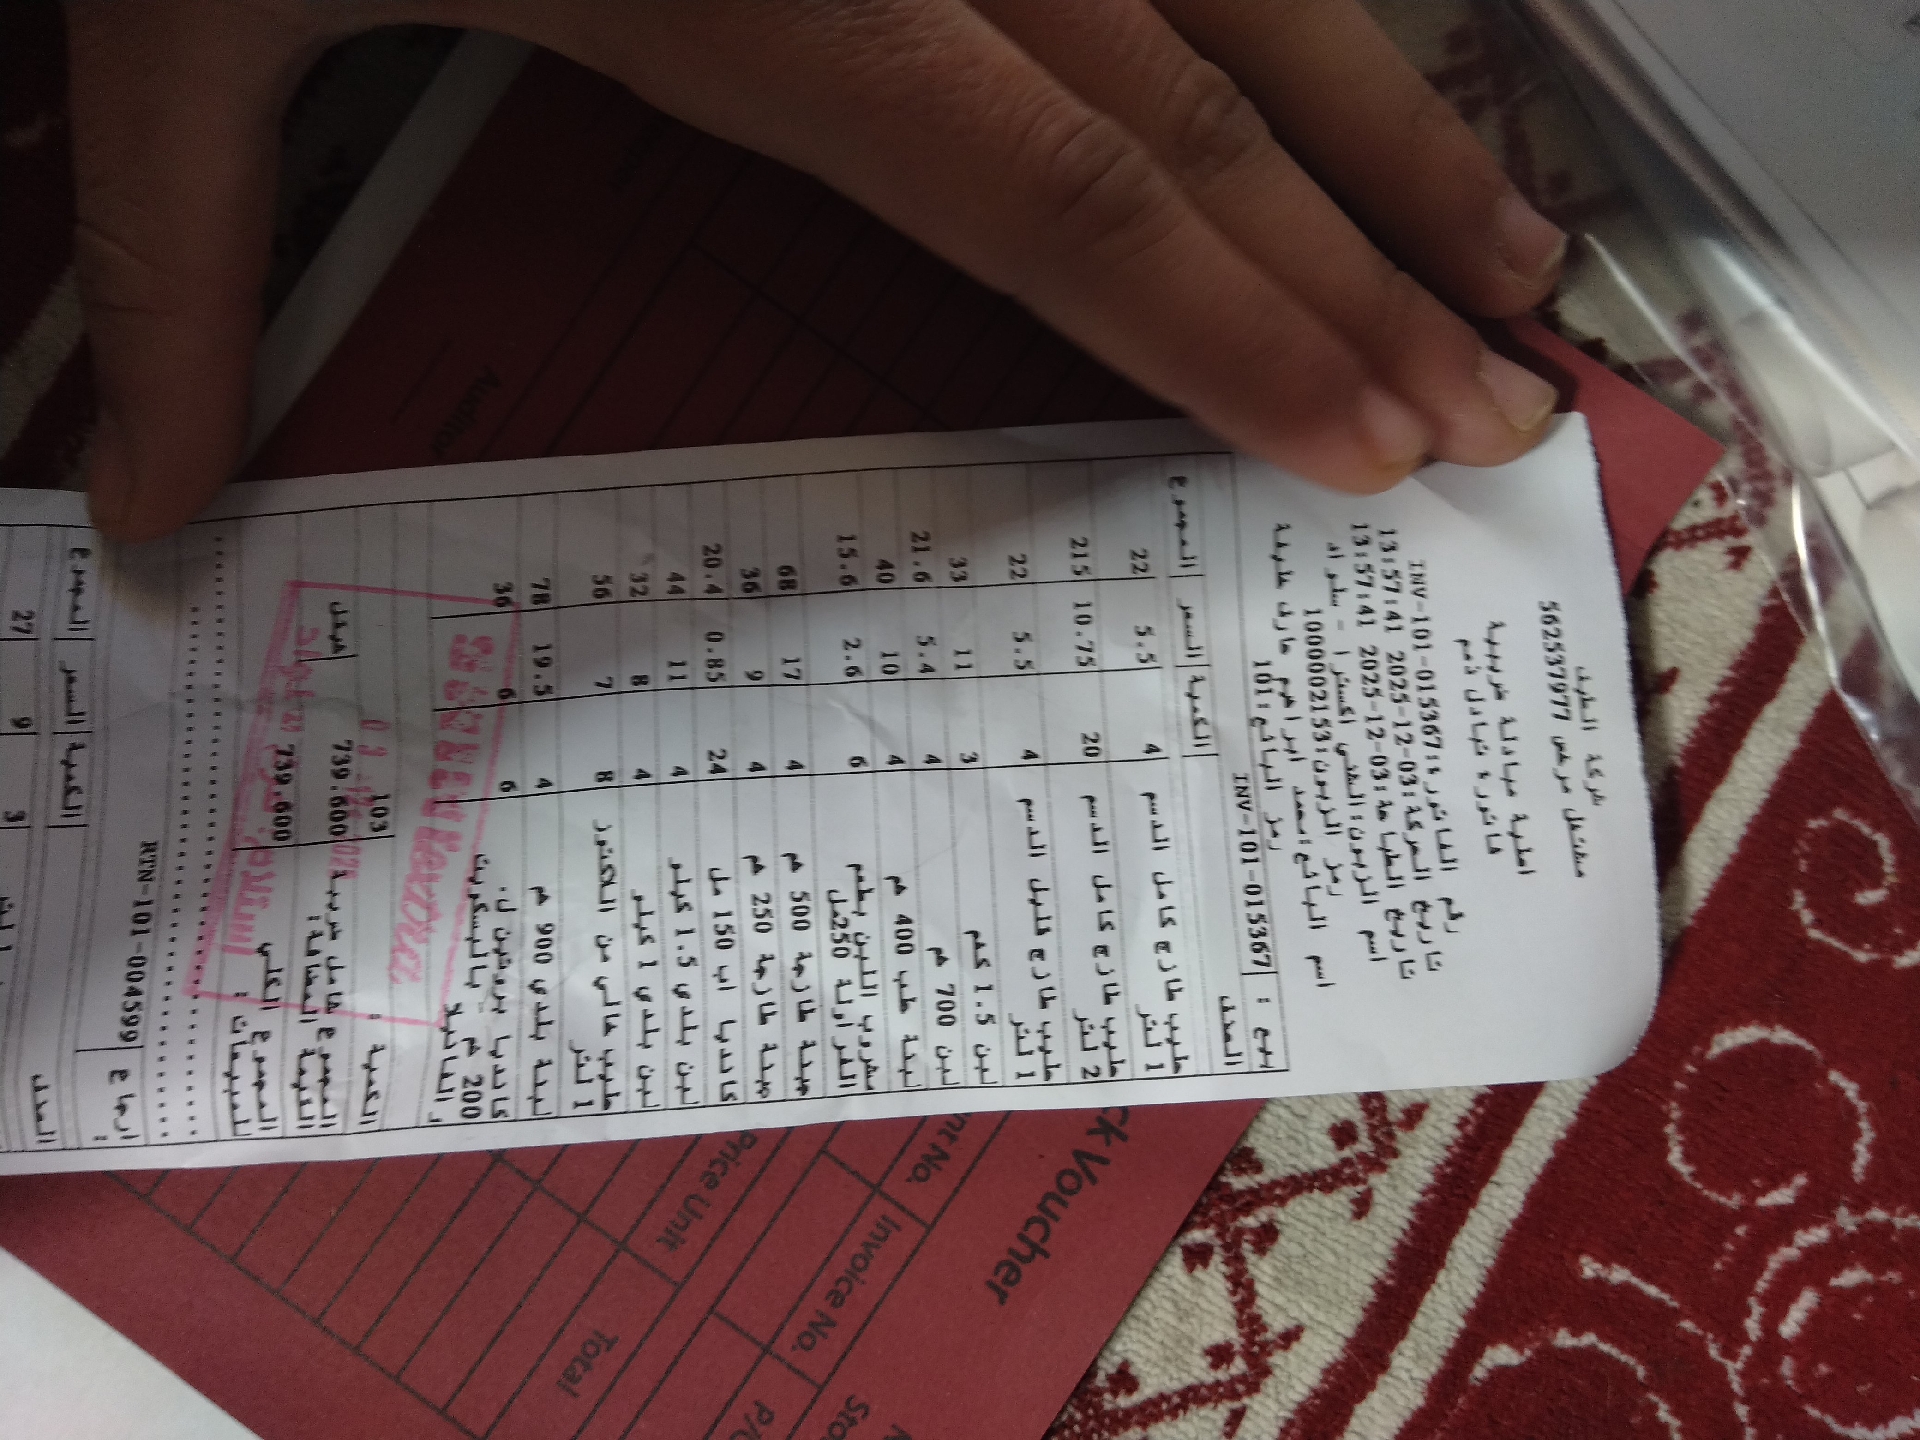 شركة الطيف
مشتغل مرخص 562537977
اطلبة مبادلة ضريبية
فاتورة تبادل ذمم
رقم الفاتورة: INV-101-015367
تاريخ الحركة: 03-12-2025 13:57:41
تاريخ الطباعة: 03-12-2025 13:57:41
اسم الزبون: التقني اكسترا - سلواد
رمز الزبون: 1000002153
اسم البائع: محمد ابراهيم عارف
رمز البائع: 101
بيع : INV-101-015367
الصنف الكمية السعر المجموع
حليب طازج كامل الدسم 1 لتر 4 5.5 22
حليب طازج كامل الدسم 2 لتر 20 10.75 215
حليب طازج قليل الدسم 1 لتر 4 5.5 22
لبن 1.5 كغم 3 11 33
لبن 700 غم 4 5.4 21.6
لبنة علب 400 غم 4 10 40
مشروب اللبن بطعم الفراولة 250مل 6 2.6 15.6
جبنة طازجة 500 غم 4 17 68
جبنة طازجة 250 غم 4 9 36
كانديا اب 150 مل 24 0.85 20.4
لبن بلدي 1.5 كيلو 4 11 44
لبن بلدي 1 كيلو 4 8 32
حليب خالي من اللاكتوز 1 لتر 8 7 56
لبنة بلدي 900 غم 4 19.5 78
كانديا بروتين ل. 200 غم - بالبسكويت و الفانيلا 6 6 36
الكمية : 103
المجموع شامل ضريبة القيمة المضافة: 739.600 شيقل
المجموع الكلي للمبيعات : 739.600
ارجاع : RTN-101-004599
الصنف الكمية السعر المجموع
3 9 27
Auditor
ck Voucher
Invoice No.
Price Unit
Total